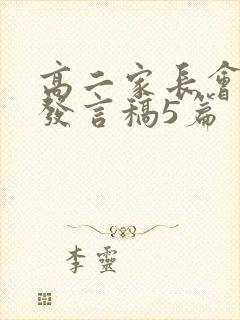 高二家長會
發言稿5篇
李靈